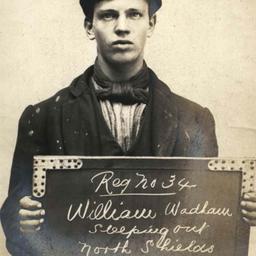 Reg No 34
William Wadham
Sleeping out
North Shields